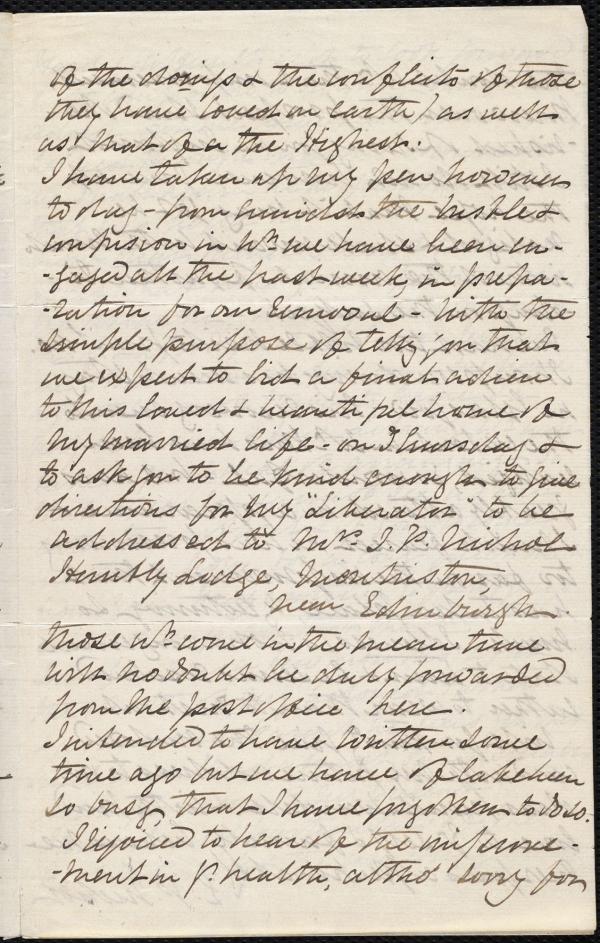 of the doings & the conflicts of those
they have loved on earth) as well
as that of a the Highest.
I have taken up my pen however
to day - from amidst the bustle &
confusion in wh. we have been en-
-gaged all the past week, in prepa-
-ration for our removal - with the
simple purpose of tellig you that
we expect to bid a final adieu
to this loved & beautiful home of
my married life - on Thursday &
to ask you to be kind enough to give
directions for my "Liberator" to be
addressed to Mrs. J. P. Nichol
Huntly Lodge, Merchiston,
near Edinburgh.
those wh. come in the mean time
will no doubt be duly forwarded
from the post office here.
I intended to have written some
time ago but we have of late been
so busy that I have forgotten to do so.
I rejoiced to hear of the improve-
-ment in yr. health, altho' sorry for